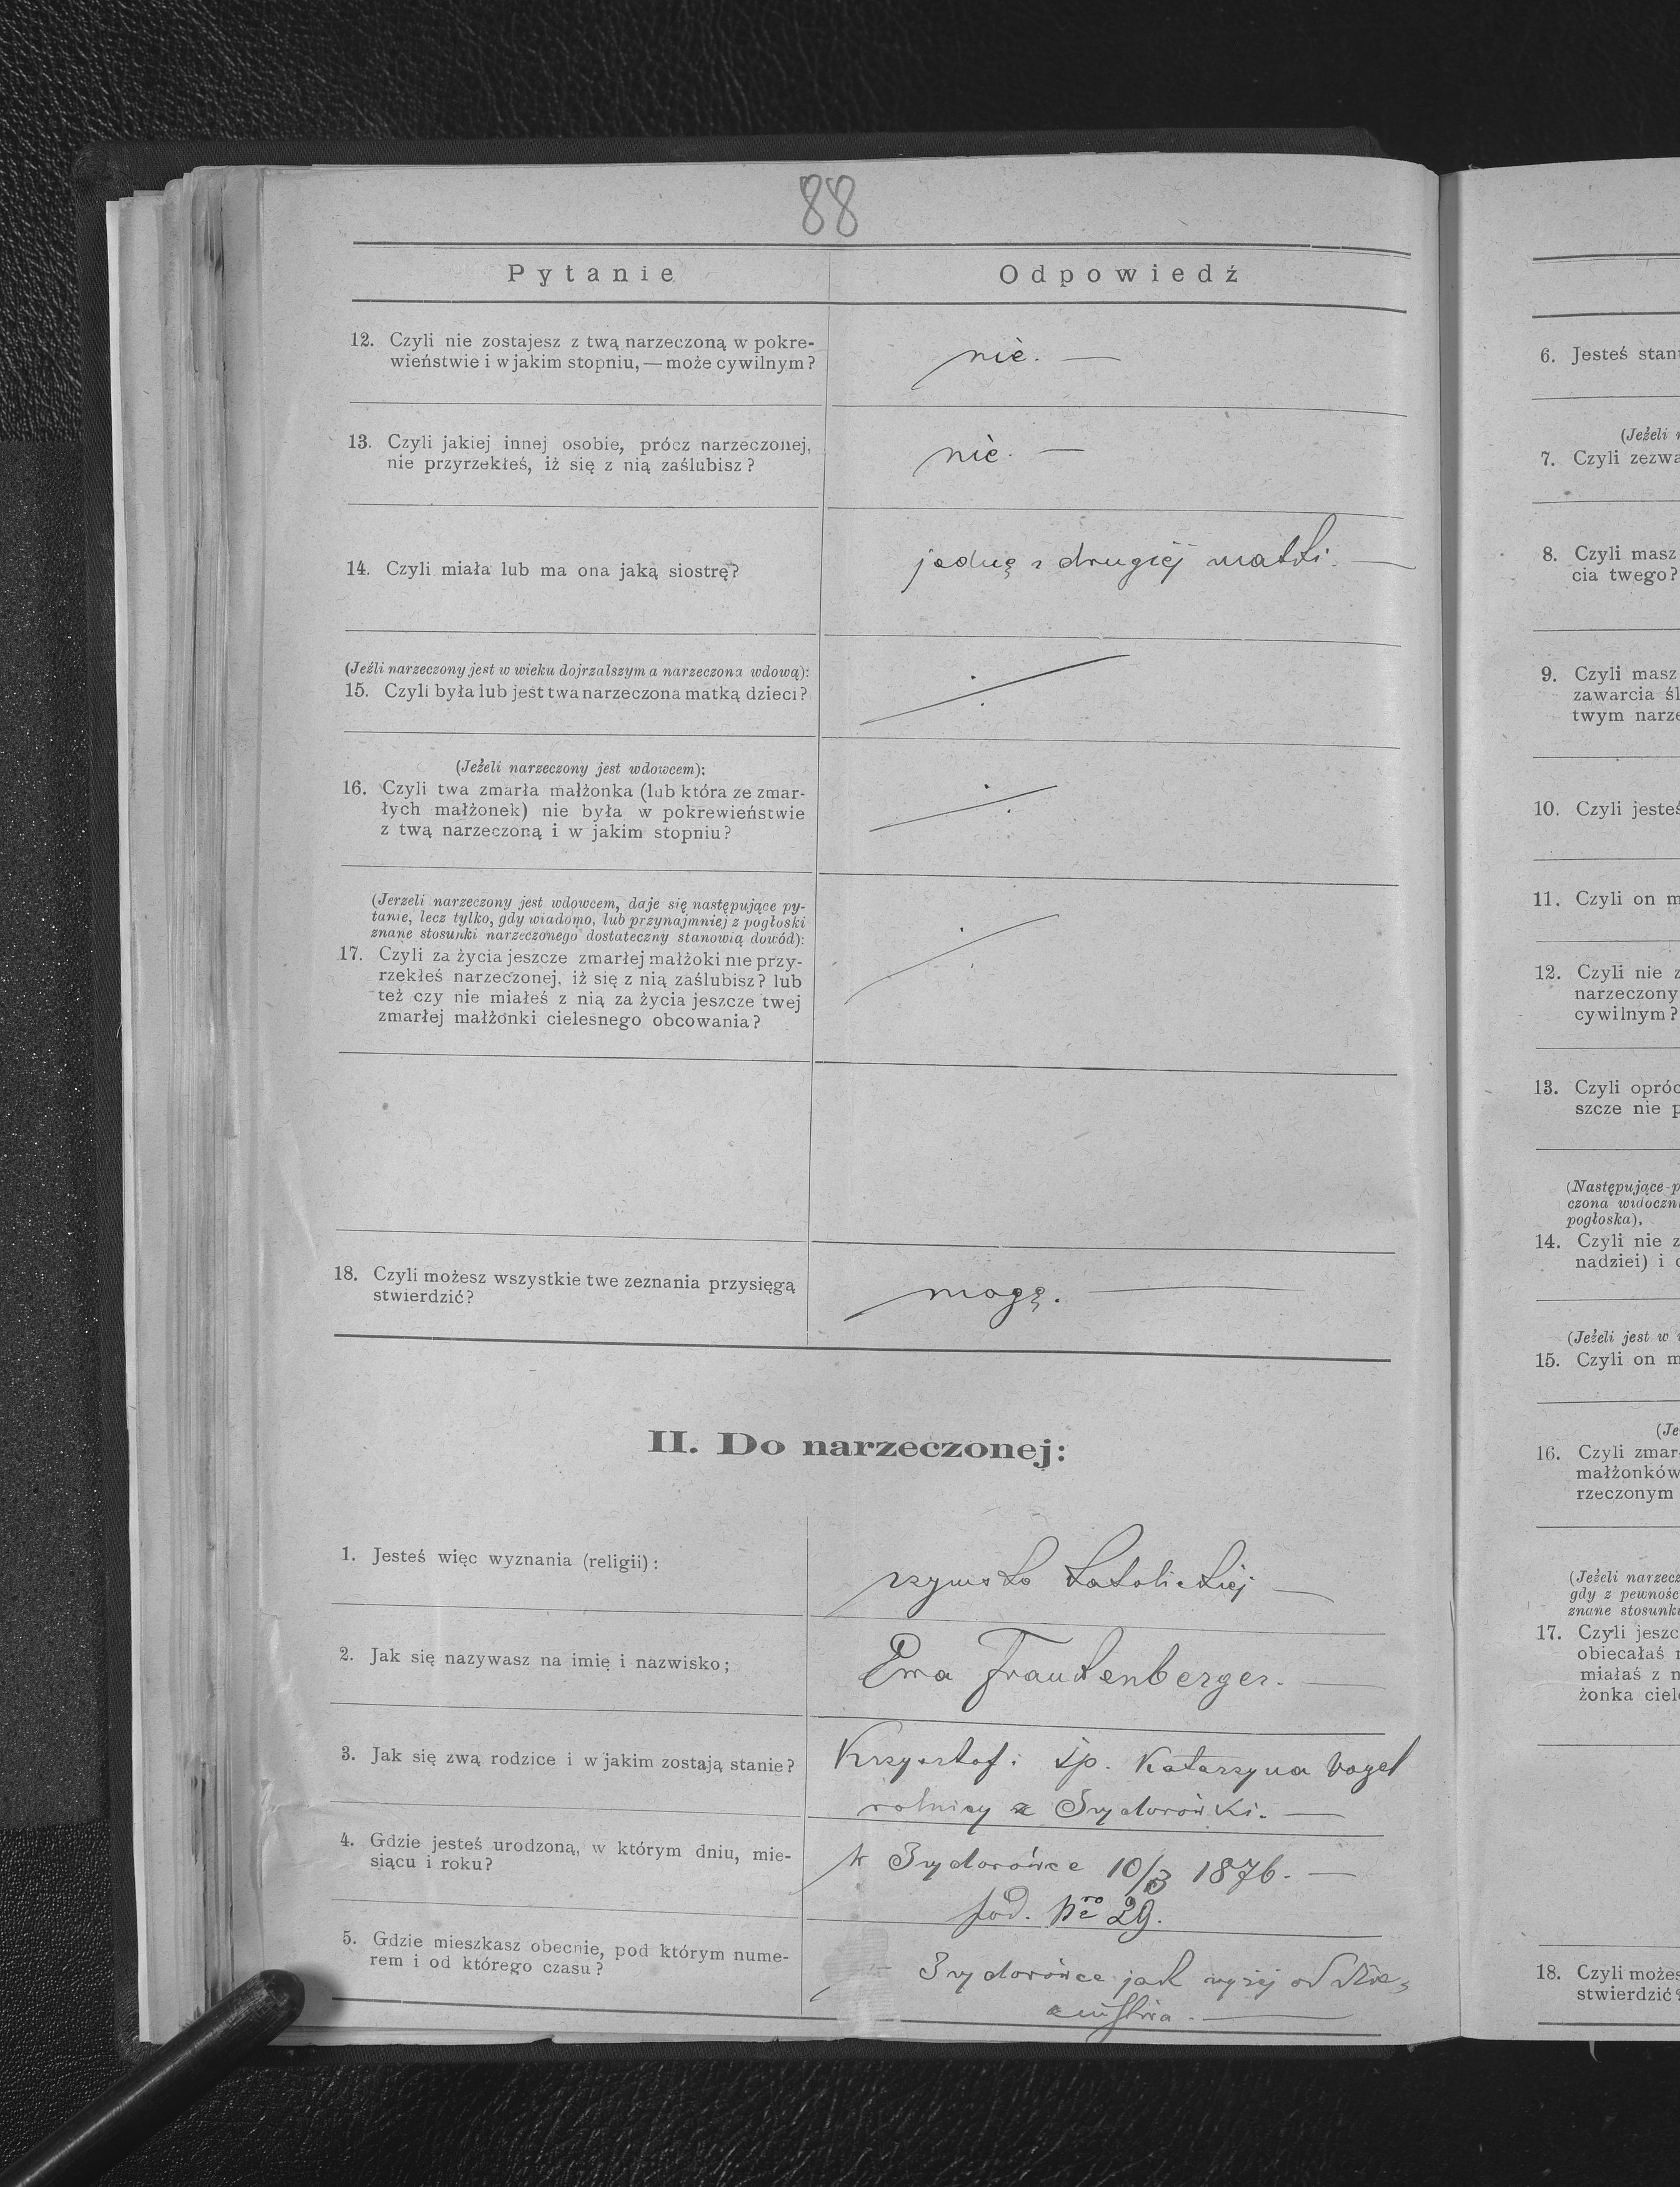 88
Pytanie
Odpowiedź
12. Czyli nie zostajesz z twą narzeczoną w pokre-
wieństwie i w jakim stopniu, — może cywilnym?
nie. —
13. Czyli jakiej innej osobie, prócz narzeczonej,
nie przyrzekłeś, iż się z nią zaślubisz?
nie. —
14. Czyli miała lub ma ona jaką siostrę?
jedną z drugiej matki. —
(Jeźli narzeczony jest w wieku dojrzalszym a narzeczona wdową):
15. Czyli była lub jest twa narzeczona matką dzieci?
(Jeżeli narzeczony jest wdowcem);
16. Czyli twa zmarła małżonka (lub która ze zmar-
łych małżonek) nie była w pokrewieństwie
z twą narzeczoną i w jakim stopniu?
(Jerzeli narzeczony jest wdowcem, daje się następujące py-
tanie, lecz tylko, gdy wiadomo, lub przynajmniej z pogłoski
znane stosunki narzeczonego dostateczny stanowią dowód):
17. Czyli za życia jeszcze zmarłej małżoki nie przy-
rzekłeś narzeczonej, iż się z nią zaślubisz? lub
też czy nie miałeś z nią za życia jeszcze twej
zmarłej małżonki cielesnego obcowania?
18. Czyli możesz wszystkie twe zeznania przysięgą
stwierdzić?
mogę. —
II. Do narzeczonej:
1. Jesteś więc wyznania (religii):
rzymsko katolickiej —
2. Jak się nazywasz na imię i nazwisko;
Ewa Fraudenberger. —
3. Jak się zwą rodzice i w jakim zostają stanie?
Krzysztof i śp. Katarzyna Vogel
rolnicy z Sydorówki. —
4. Gdzie jesteś urodzoną, w którym dniu, mie-
siącu i roku?
w Sydorówce 10/3 1876. —
pod. Nro 29.
5. Gdzie mieszkasz obecnie, pod którym nume-
rem i od którego czasu?
Sydorówce jak wyżej od
6. Jesteś stan
(Jeżeli
7. Czyli zezwa
8. Czyli masz
cia twego?
9. Czyli masz
zawarcia śl
twym narze
10. Czyli jesteś
11. Czyli on m
12. Czyli nie z
narzeczony
cywilnym?
13. Czyli opróc
szcze nie p
(Następujące p
czona widoczn
pogłoska),
14. Czyli nie z
nadziei) i
(Jeżeli jest w
15. Czyli on m
(Je
16. Czyli zmar
małżonków
rzeczonym
(Jeżeli narzecz
gdy z pewnośc
znane stosunk
17. Czyli jeszc
obiecałaś
miałaś z n
żonka ciel
18. Czyli możes
stwierdzić?